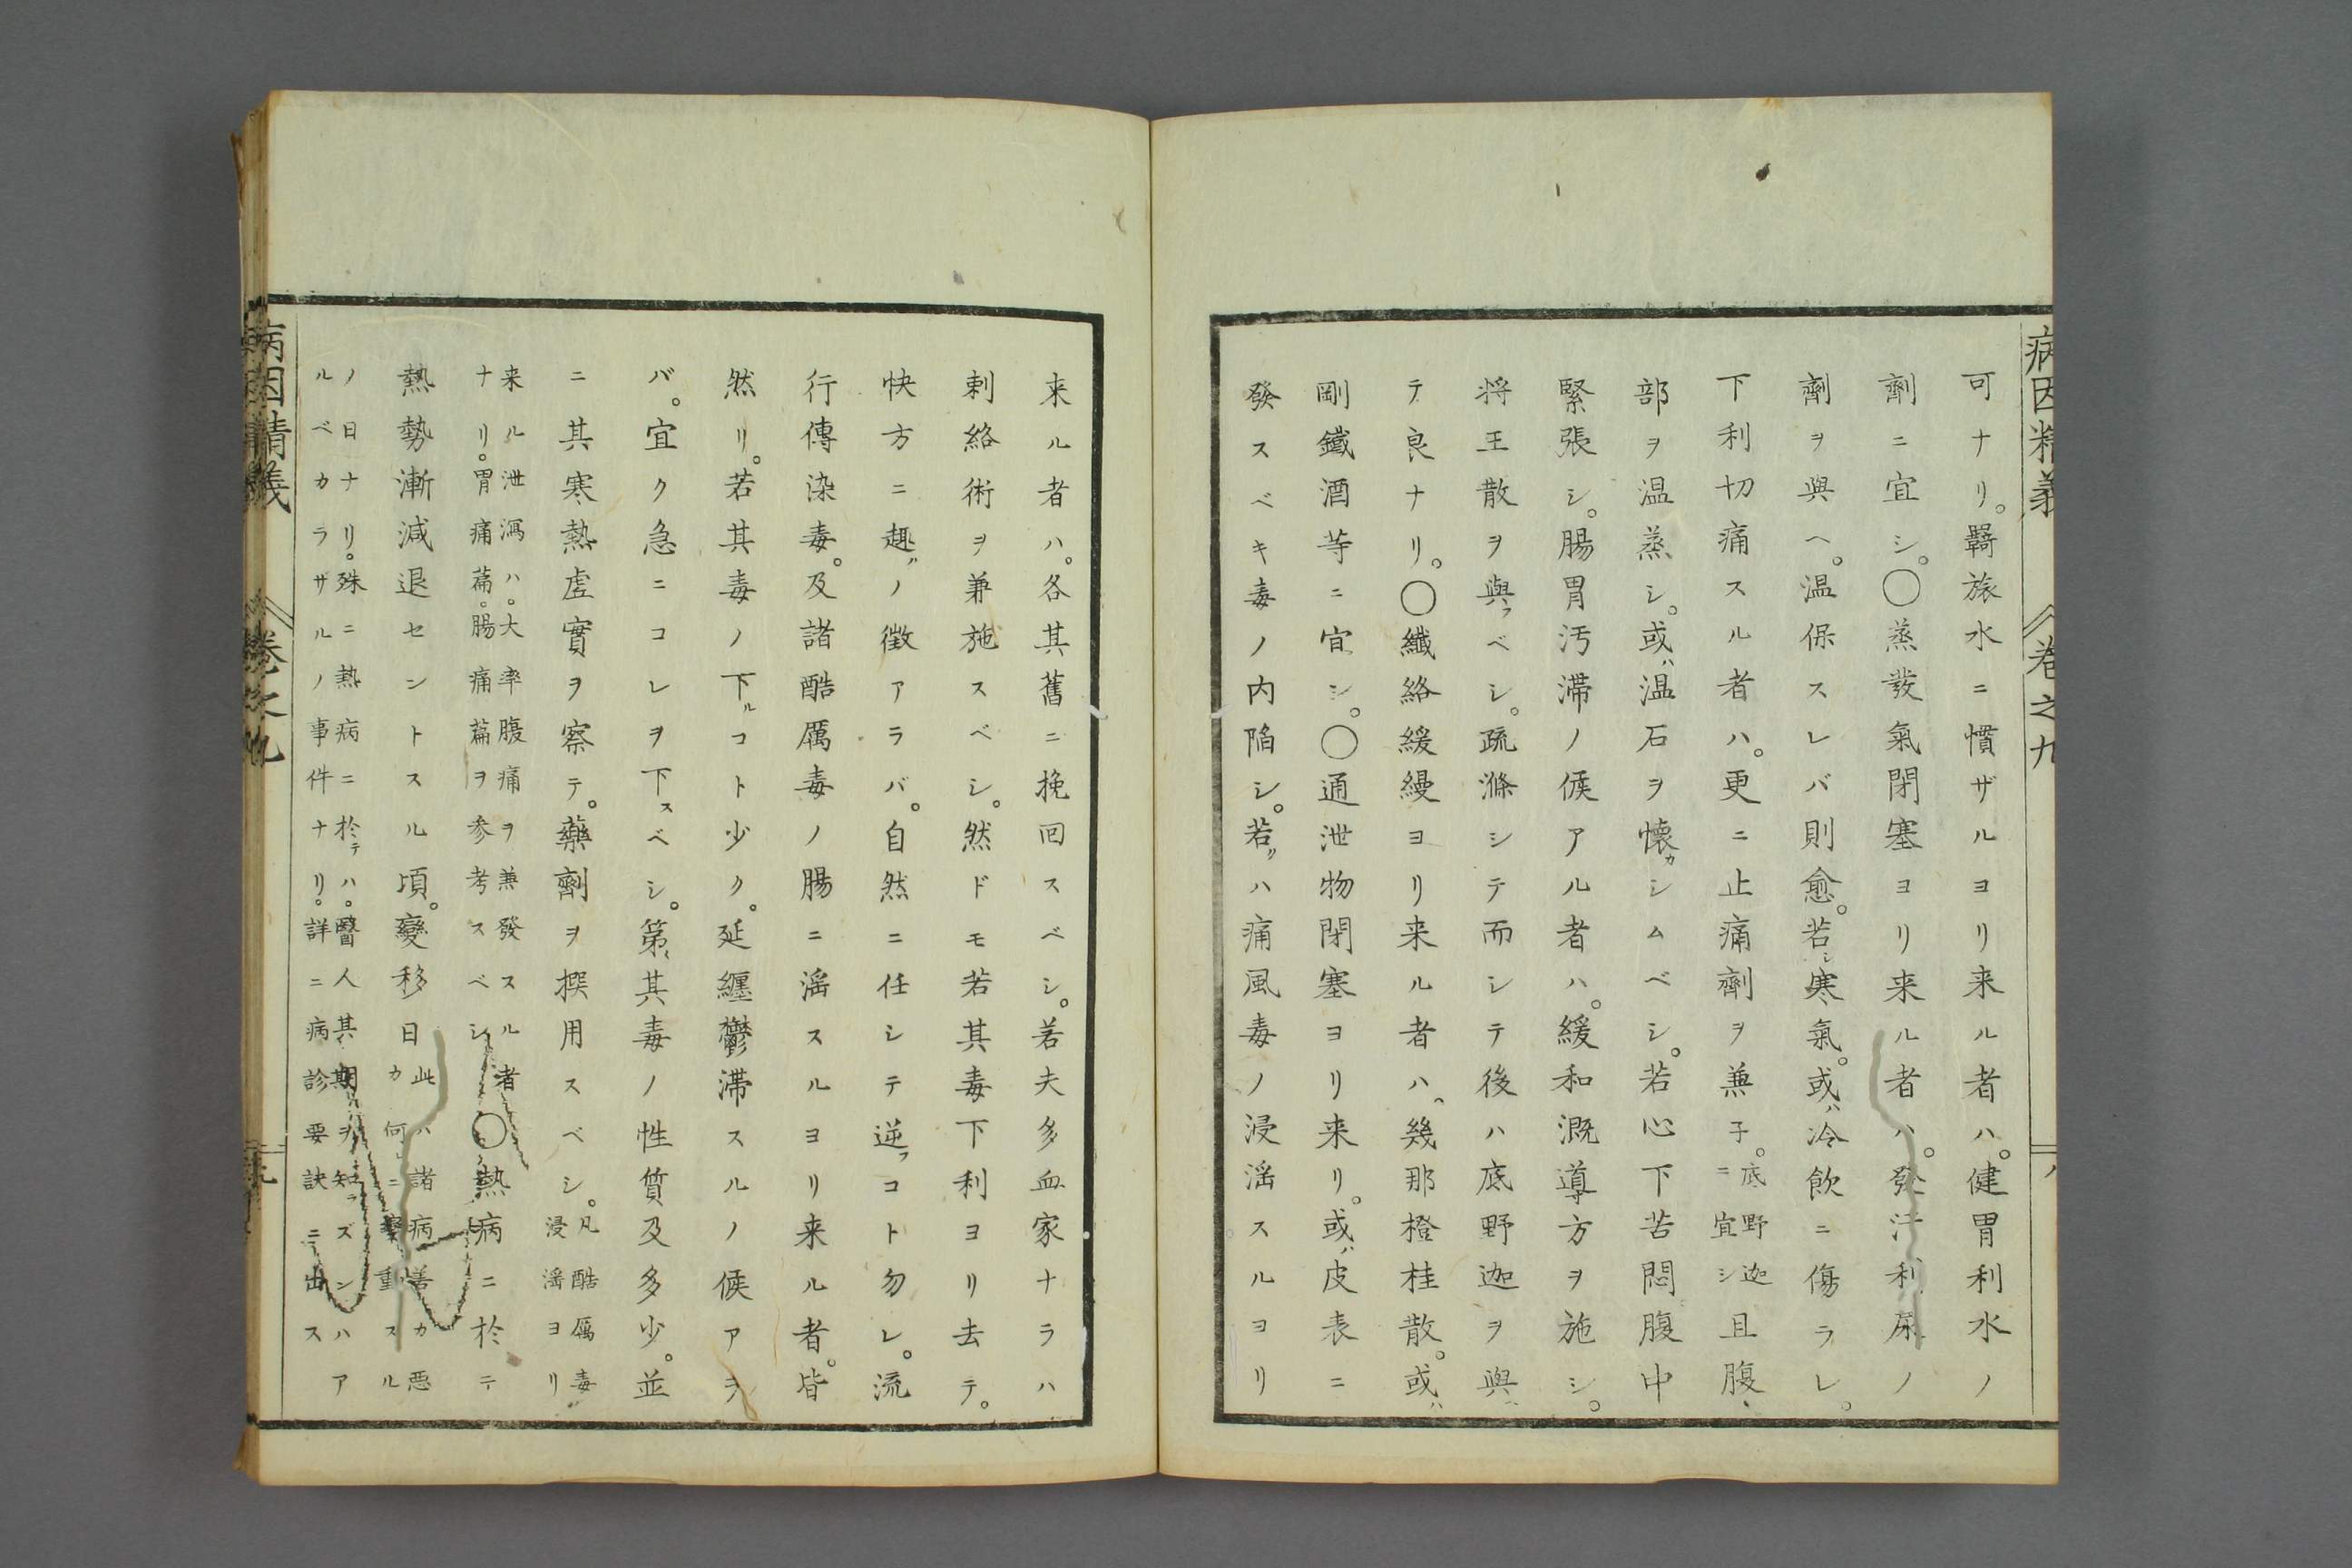 病因精義 卷之九 八
可ナリ。羇旅水ニ慣ザルヨリ来ル者ハ。健胃利水ノ
劑ニ宜シ。〇蒸發氣閉塞ヨリ来ル者ハ。發汗利尿ノ
劑ヲ與ヘ。温保スレバ則愈。若シ寒氣。或ハ冷飲ニ傷ラレ。
下利切痛スル者ハ。更ニ止痛劑ヲ兼予。底野迦ニ宜シ且腹
部ヲ温蒸シ。或ハ温石ヲ懐カシムベシ。若心下苦悶腹中
緊張シ。腸胃汚滞ノ候アル者ハ。緩和溉導方ヲ施シ。
将王散ヲ與フベシ。疏滌シテ而シテ後ハ底野迦ヲ與
テ良ナリ。〇纖絡緩縵ヨリ来ル者ハ。幾那橙桂散。或ハ
剛鐵酒等ニ宜シ。〇通泄物閉塞ヨリ来リ。或ハ皮表ニ
發スベキ毒ノ内陥シ。若クハ痛風毒ノ浸淫スルヨリ
来ル者ハ。各其舊ニ挽回スベシ。若夫多血家ナラハ
刺絡術ヲ兼施スベシ。然ドモ若其毒下利ヨリ去テ。
快方ニ趣クノ徴アラバ。自然ニ任シテ逆フコト勿レ。流
行傳染毒。及諸酷厲毒ノ腸ニ淫スルヨリ来ル者。皆
然リ。若其毒ノ下ルコト少ク。延纏鬱滞スルノ候アラ
バ。宜ク急ニコレヲ下スベシ。第其毒ノ性質及多少。並
ニ其寒熱虚實ヲ察テ。藥劑ヲ撰用スベシ。凡酷厲毒浸淫ヨリ
来ル泄瀉ハ。大率腹痛ヲ兼發スル者ナリ。胃痛篇。腸痛篇ヲ参考スベシ〇熱病ニ於テ
熱勢漸減退セントスル頃。變移日此ハ諸病善カ悪カ何レニ變動スル
ノ日ナリ。殊ニ熱病ニ於テハ。醫人其期ヲ知ラズンハアルベカラザルノ事件ナリ。詳ニ病診要訣ニ出ス
病因精義 卷之九